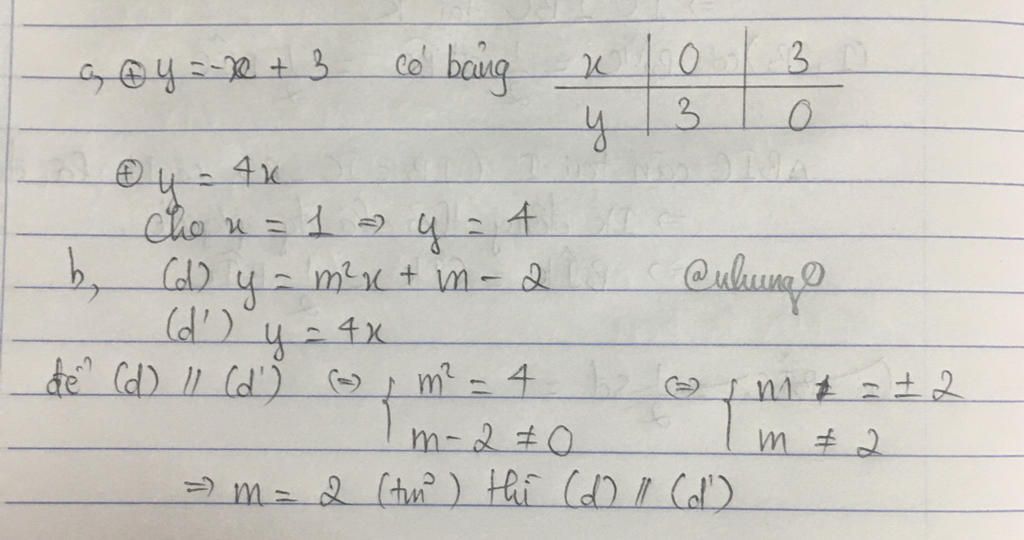 a, ⊕ y = -x + 3 có bảng x | 0 | 3
y | 3 | 0
⊕ y = 4x
Cho x = 1 ⇒ y = 4
b, (d) y = m²x + m - 2 @nhung
(d') y = 4x
để (d) // (d') ⇔ { m² = 4 ⇔ { m = ± 2
m - 2 ≠ 0 m ≠ 2
⇒ m = 2 (tm²) thì (d) // (d')